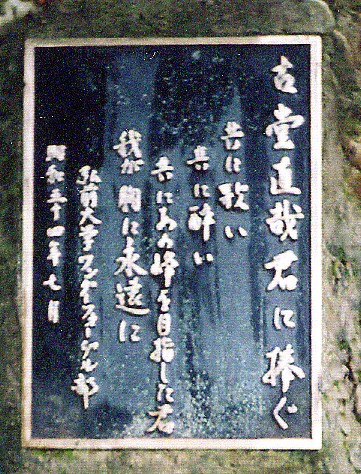 古堂直哉君に捧ぐ
共に歌い
共に酔い
共にあの峰を目指した君
我が胸に永遠に
弘前大学ワンダーフォーゲル部
昭和五十四年七月